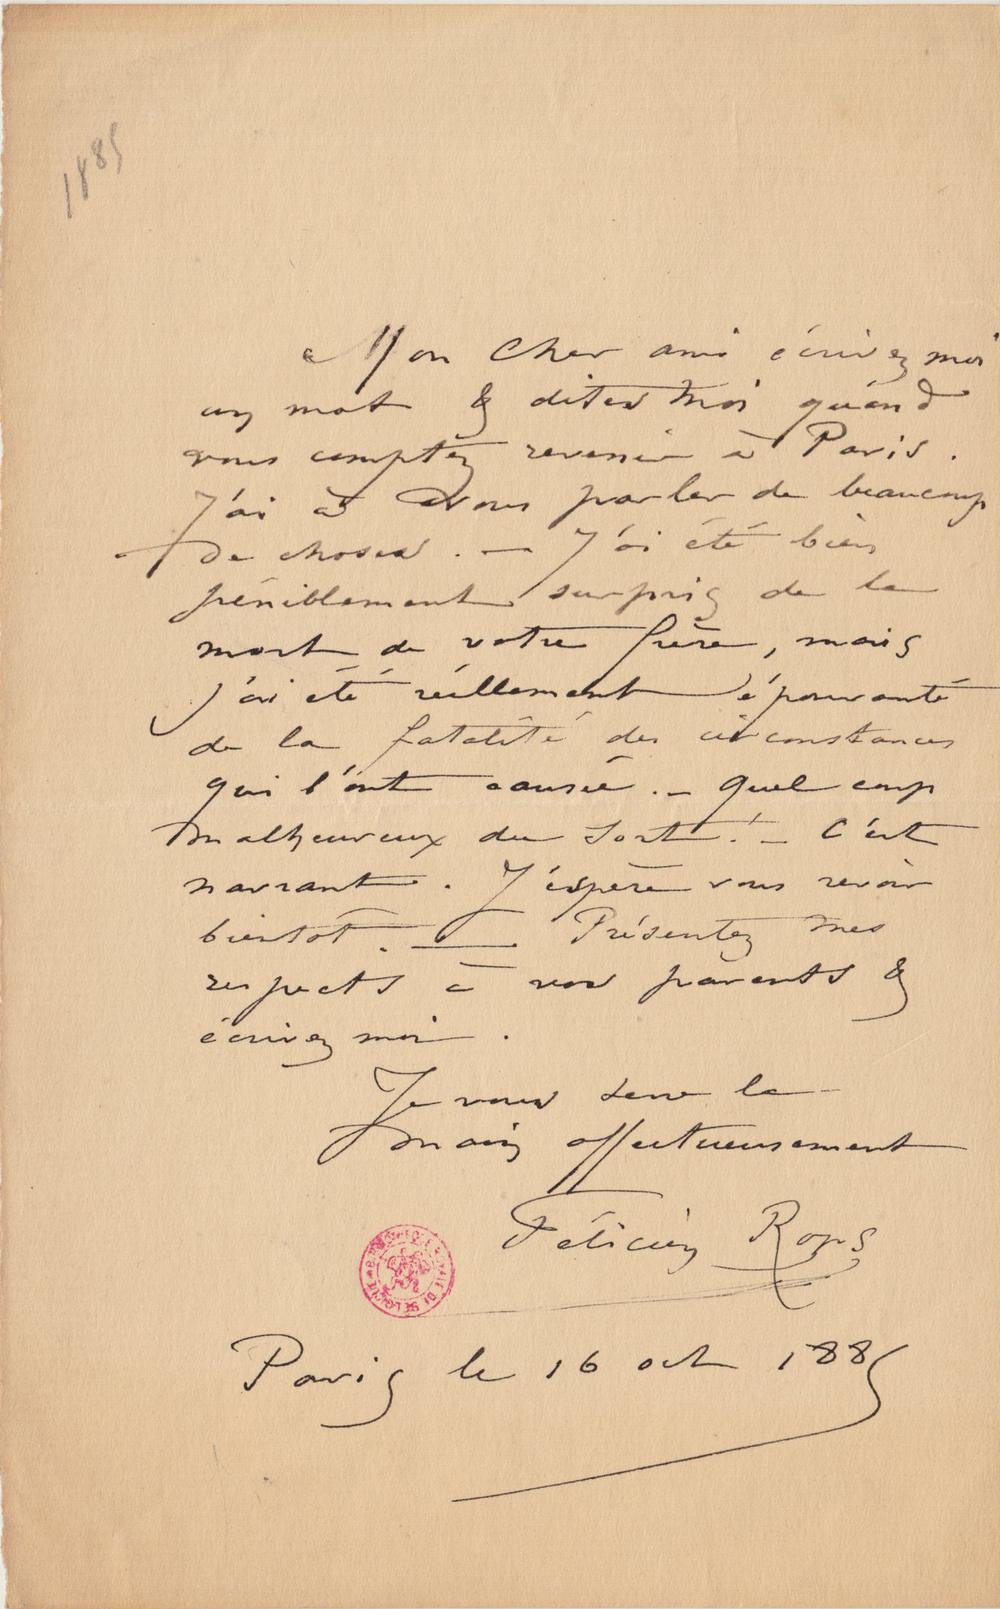 1885
Mon Cher ami écrivez moi
un mot & dites moi quand
vous comptez revenir à Paris.
J'ai à vous parler de beaucoup
de choses. — J'ai été bien
péniblement surpris de la
mort de votre frère, mais
j'ai été réellement épouvanté
de la fatalité des circonstances
qui l'ont causée. — Quel coup
malheureux du sort! — C'est
navrant. J'espère vous revoir
bientôt. — Présentez mes
respects à vos parents &
écrivez moi.
Je vous serre la
main affectueusement
Félicien Rops
Paris le 16 oct 1885